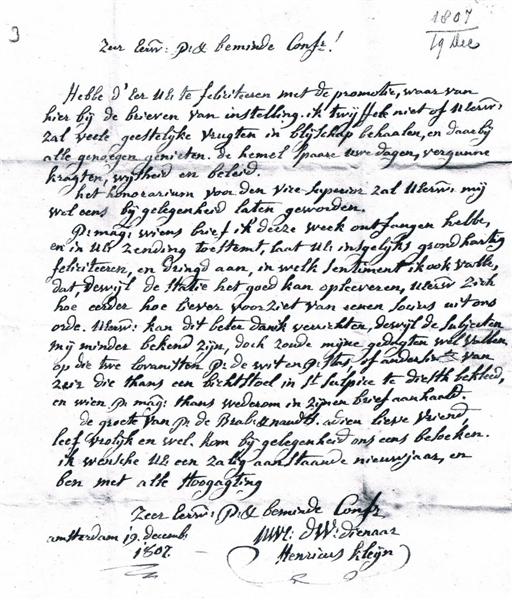 3
1807
19 Dec
Zeer Eerw: P: & beminde Confr!
Hebbe d'Eer UE: te feliciteeren met de promotie, waar van
hier bij de brieven van instelling. ik twijffele niet of UEerw:
zal veele geestelijke vrugten in blijschap behaalen, en daar bij
alle genoegen genieten. de hemel spaare uwe dagen, vergunne
kragten, wijsheid en beleid.
het honorarium voor den vice-superior zal UEerw: mij
wel eens bij gelegenheid laten geworden.
P: mag: wiens brief ik deeze week ontfangen hebbe,
en in UE: zending toestemt, laat UE: insgelijks grond hartig
feliciteeren, en dringd aan, in welk sentiment ik ook valle,
dat, dewijl de statie het goed kan opleeveren, UEerw zich
hoe eerder hoe liever voorziet van eenen socius uit ons
orde. UEerw: kan dit beter dan ik verrichten, dewijl de subjecten
mij minder bekend zijn, doch zoude mijne gedagten wel vallen
op die twe lovanisten P: de wit en P: , of anders van
Zeir die thans een bichtstoel in St Sulpice te diesth bekleed,
en wien P: mag: thans wederom in zijnen brief aanhaald.
de groete van P: de Brab: & naudts. adieu lieve vriend,
leef vrolijk en wel. kom bij gelegenheid ons eens besoeken.
ik wensche UE een zalig aanstaande nieuwjaar, en
ben met alle Hoogagting
Zeer Eerw: P: & beminde Confr
amsterdam 19 decemb UWE: dW: dienaar
1807. Henricus Kleijn